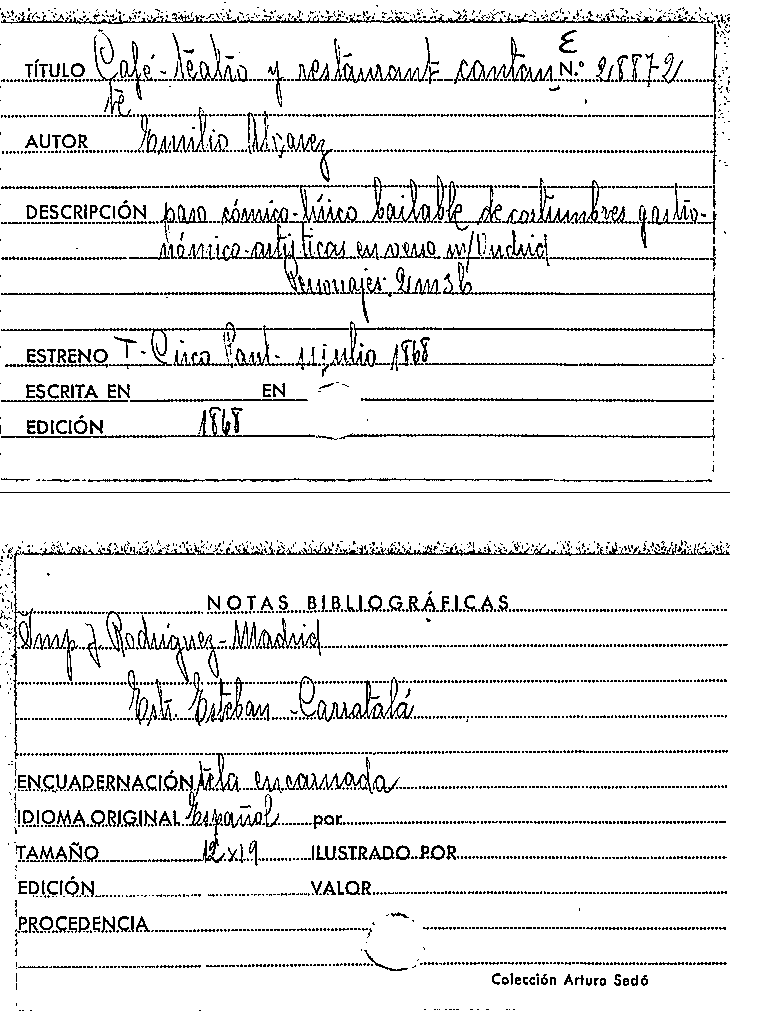 E
TÍTULO Café-teatro y restaurant cantan N.º 28872
te
AUTOR Emilio Alvarez
DESCRIPCIÓN paso cómico-lírico bailable de costumbres gastro-
nómico-artísticas en verso m/Oudrid
Personajes: 2m 3h
ESTRENO T. Circo Paul- 11 julio 1868
ESCRITA EN EN
EDICIÓN 1868
NOTAS BIBLIOGRÁFICAS
Imp J. Rodríguez-Madrid
Estr. Esteban-Carratalá
ENCUADERNACIÓN tela encarnada
IDIOMA ORIGINAL Español por
TAMAÑO 12x19 ILUSTRADO POR
EDICIÓN VALOR
PROCEDENCIA
Colección Arturo Sedó